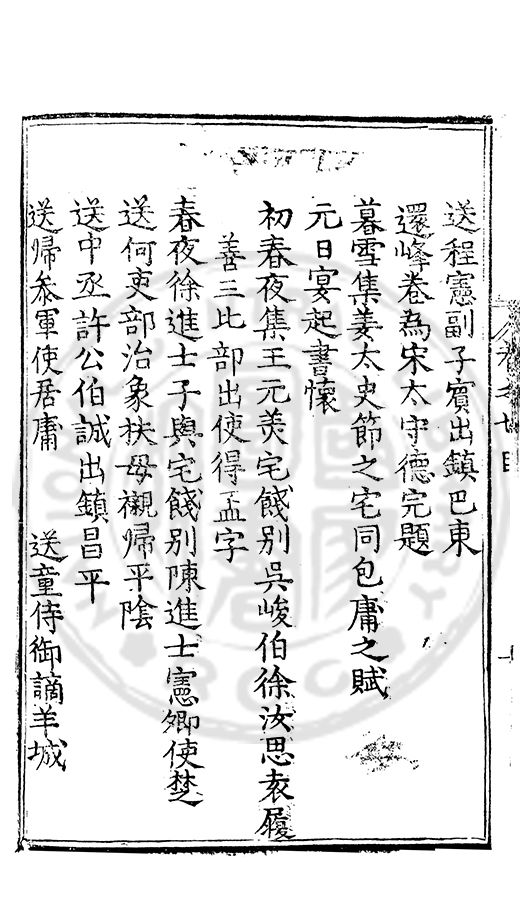 送程憲副子賓出鎮巴東
還峰卷為宋太守德完題
暮雪集姜太史節之宅同包庸之賦
元日宴起書懷
初春夜集王元美宅餞別吳峻伯徐汝思袁履
善三比部出使得孟字
春夜徐進士子與宅餞別陳進士憲卿使楚
送何吏部治象扶母櫬歸平陰
送中丞許公伯誠出鎮昌平
送歸叅軍使居庸 送童侍御謫羊城